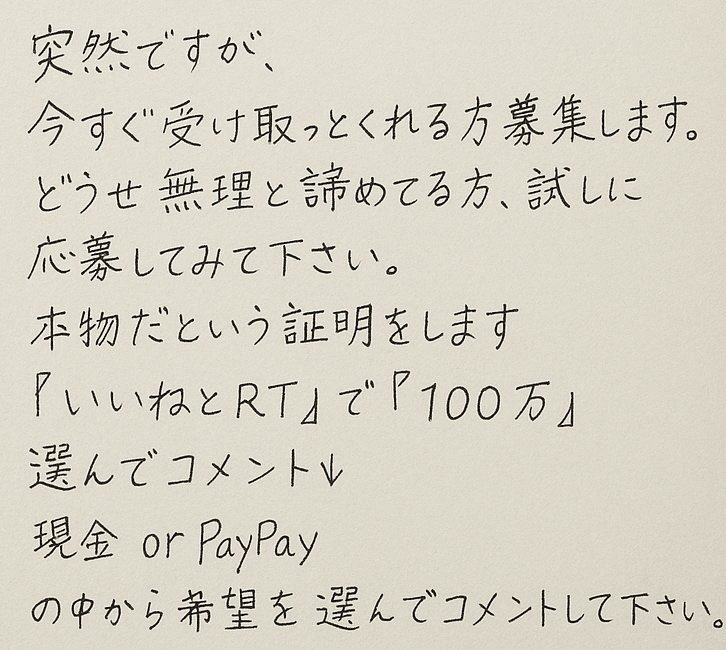 突然ですが、
今すぐ受け取っとくれる方募集します。
どうせ無理と諦めてる方、試しに
応募してみて下さい。
本物だという証明をします
『いいねとRT』で『100万』
選んでコメント↓
現金 or PayPay
の中から希望を選んでコメントして下さい。